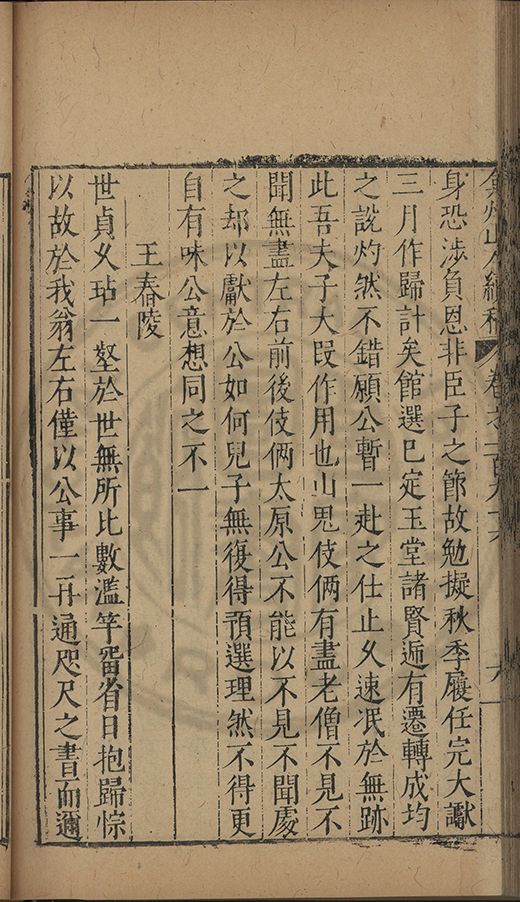 弇州山人續稿 卷之一百九十六 六
身恐涉負恩非臣子之節故勉擬秋季履任完大讞
三月作歸計矣館選已定玉堂諸賢遞有遷轉成均
之說灼然不錯願公暫一赴之仕止久速泯於無跡
此吾夫子大段作用也山鬼伎倆有盡老僧不見不
聞無盡左右前後伎倆太原公不能以不見不聞處
之却以獻於公如何兒子無復得預選理然不得更
自有味公意想同之不一
王春陵
世貞乆玷一壑於世無所比數濫竽留省日抱歸悰
以故於我翁左右僅以公事一再通咫尺之書而邇